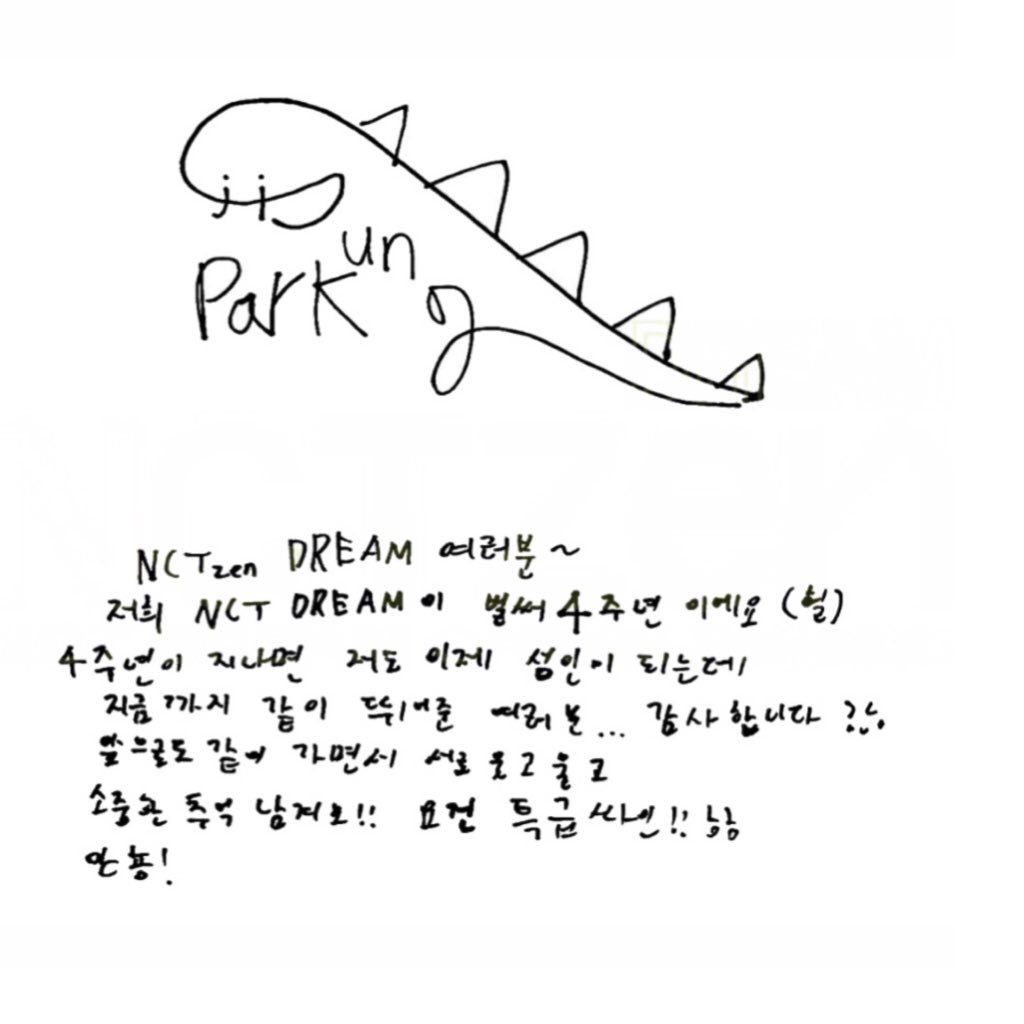 jis
un
Park
g
NCTzen DREAM 여러분~
저희 NCT DREAM이 벌써 4주년 이에요 (헐)
4주년이 지나면 저도 이제 성인이 되는데
지금까지 같이 뛰어준 여러분... 감사합니다
앞으로도 같이 가면서 서로 웃고 울고
소중한 추억 남겨요!! 요건 특급싸인!! ㅎㅎ
안뇽!